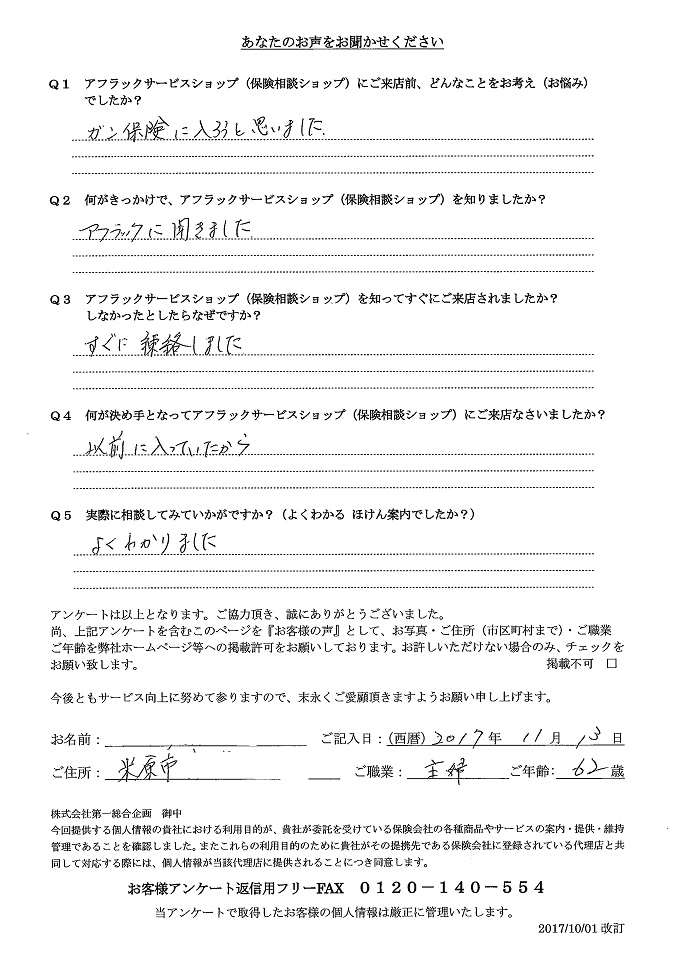 あなたのお声をお聞かせください
Q1 アフラックサービスショップ（保険相談ショップ）にご来店前、どんなことをお考え（お悩み）
でしたか？
ガン保険に入ろうと思いました
Q2 何がきっかけで、アフラックサービスショップ（保険相談ショップ）を知りましたか？
アフラックに聞きました
Q3 アフラックサービスショップ（保険相談ショップ）を知ってすぐにご来店されましたか？
しなかったとしたらなぜですか？
すぐに連絡しました
Q4 何が決め手となってアフラックサービスショップ（保険相談ショップ）にご来店なさいましたか？
以前に入っていたから
Q5 実際に相談してみていかがですか？（よくわかる ほけん案内でしたか？）
よくわかりました
アンケートは以上となります。ご協力頂き、誠にありがとうございました。
尚、上記アンケートを含むこのページを『お客様の声』として、お写真・ご住所（市区町村まで）・ご職業
ご年齢を弊社ホームページ等への掲載許可をお願いしております。お許しいただけない場合のみ、チェックを
お願い致します。 掲載不可 □
今後ともサービス向上に努めて参りますので、末永くご愛顧頂きますようお願い申し上げます。
お名前： ご記入日：（西暦）2017年 11月 13日
ご住所： 米原市 ご職業： 主婦 ご年齢： 62歳
株式会社第一総合企画 御中
今回提供する個人情報の貴社における利用目的が、貴社が委託を受けている保険会社の各種商品やサービスの案内・提供・維持
管理であることを確認しました。またこれらの利用目的のために貴社がその提携先である保険会社に登録されている代理店と共
同して対応する際には、個人情報が当該代理店に提供されることにつき同意します。
お客様アンケート返信用フリーFAX 0120－140－554
当アンケートで取得したお客様の個人情報は厳正に管理いたします。
2017/10/01 改訂